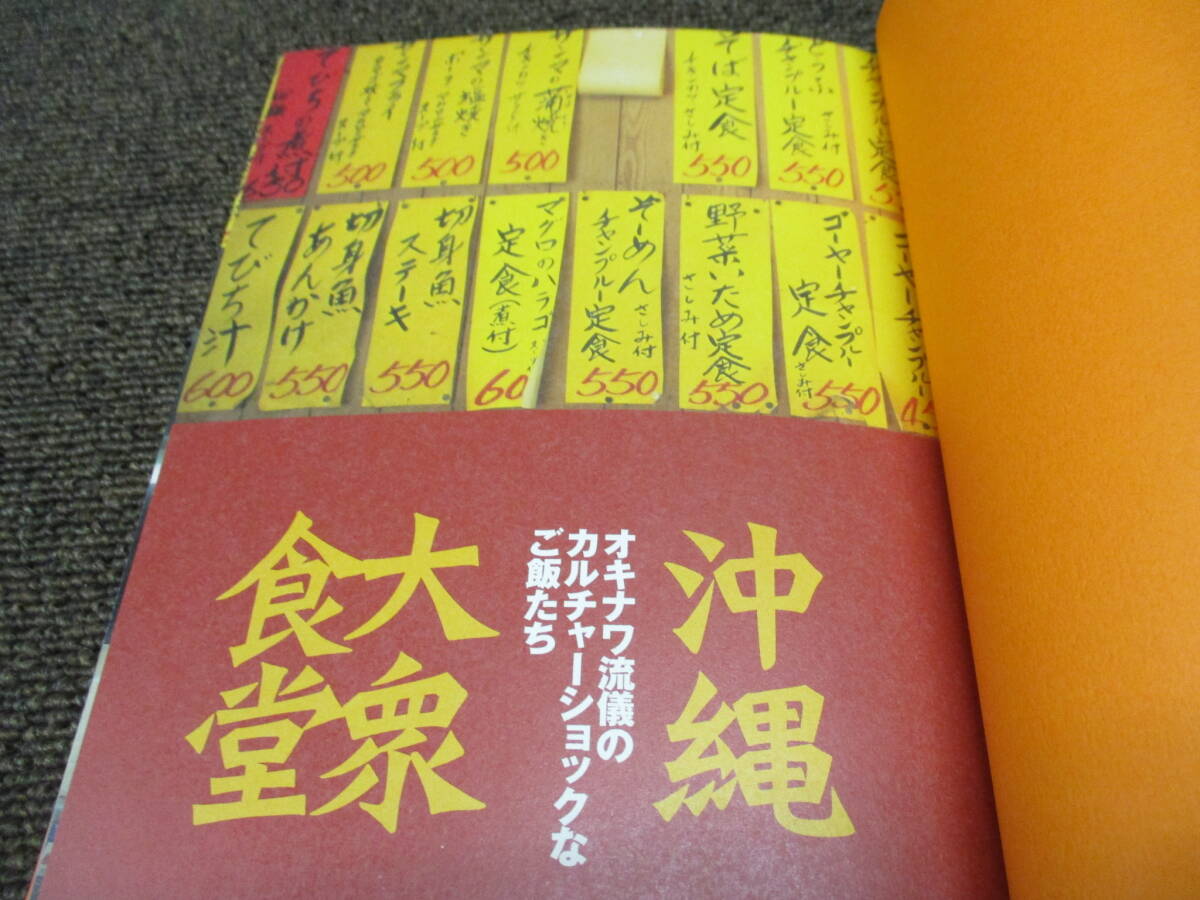 とうふ
チャンプルー定食
さしみ付
550
そば定食
550
サンマの蒲焼き
500
サンマの塩焼き
500
500
てびちの煮付
ゴーヤーチャンプルー
ゴーヤーチャンプルー
定食
さしみ付
550
野菜いため定食
さしみ付
550
そーめん
チャンプルー定食
さしみ付
550
マグロのハラゴ
定食(煮付)
60
切身魚
ステーキ
550
切身魚
あんかけ
550
てびち汁
600
沖縄
オキナワ流儀の
カルチャーショックな
ご飯たち
大衆
食堂